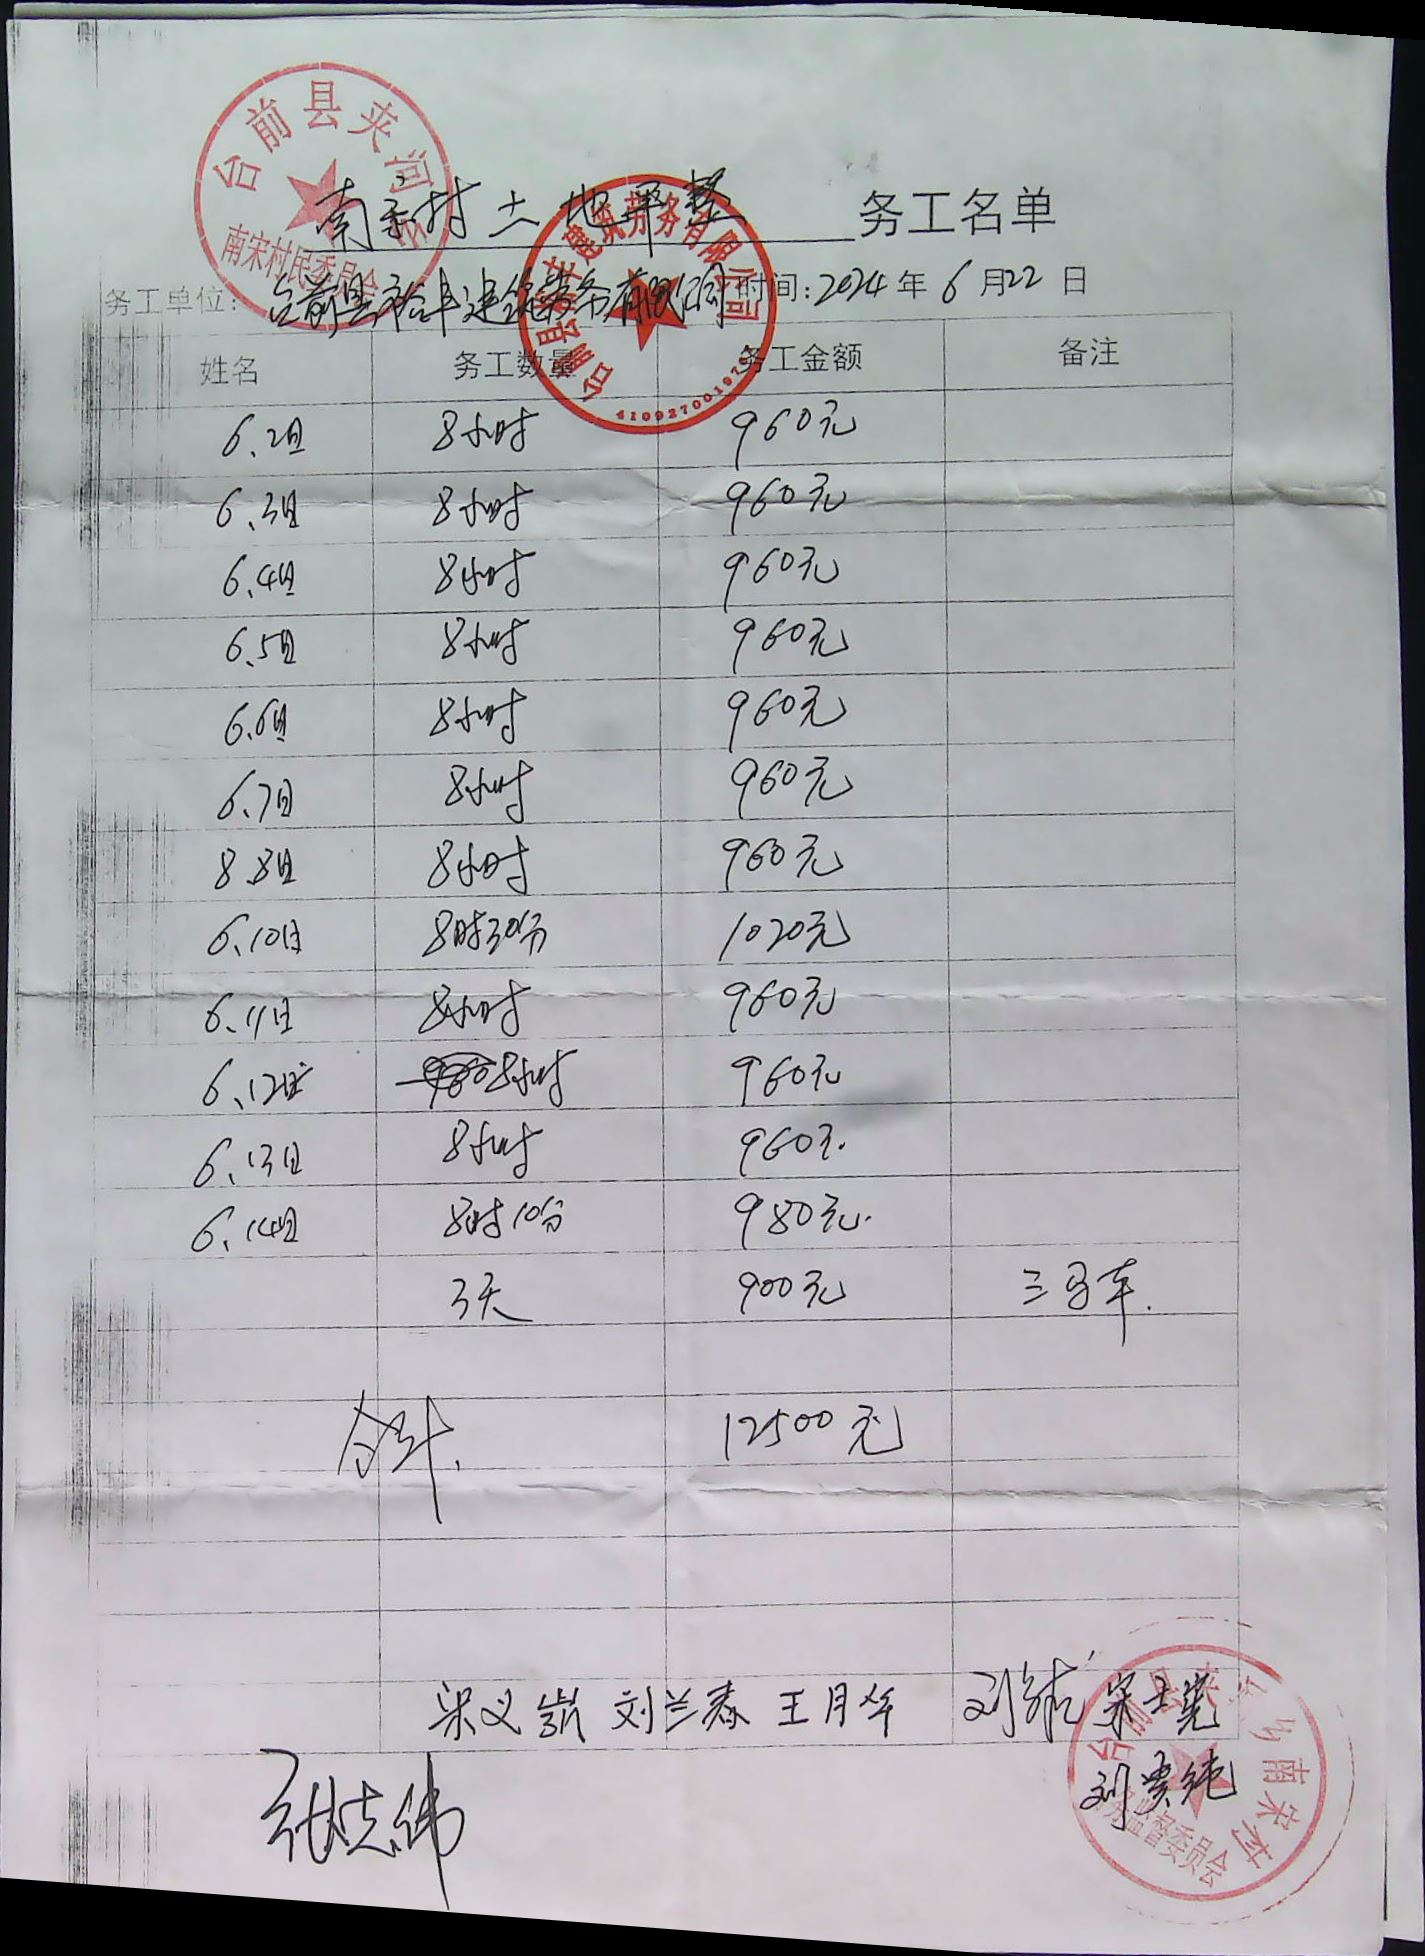 台前县夹河乡
南宋村民委员会
南宋村土地平整 务工名单
务工单位：台前县裕丰建筑劳务有限公司 时间：2024年6月22日
台前县裕丰建筑劳务有限公司
姓名 务工数量 务工金额 备注
6.2日 8小时 960元
6.3日 8小时 960元
6.4日 8小时 960元
6.5日 8小时 960元
6.6日 8小时 960元
6.7日 8小时 960元
8.8日 8小时 960元
6.10日 8时30分 1020元
6.11日 8小时 960元
6.12日 8小时 960元
6.13日 8小时 960元.
6.14日 8时10分 980元.
3天 900元 三马车.
合计. 12500元
梁义凯 刘兰春 王月华
台前县夹河乡南宋村
务监督委员会